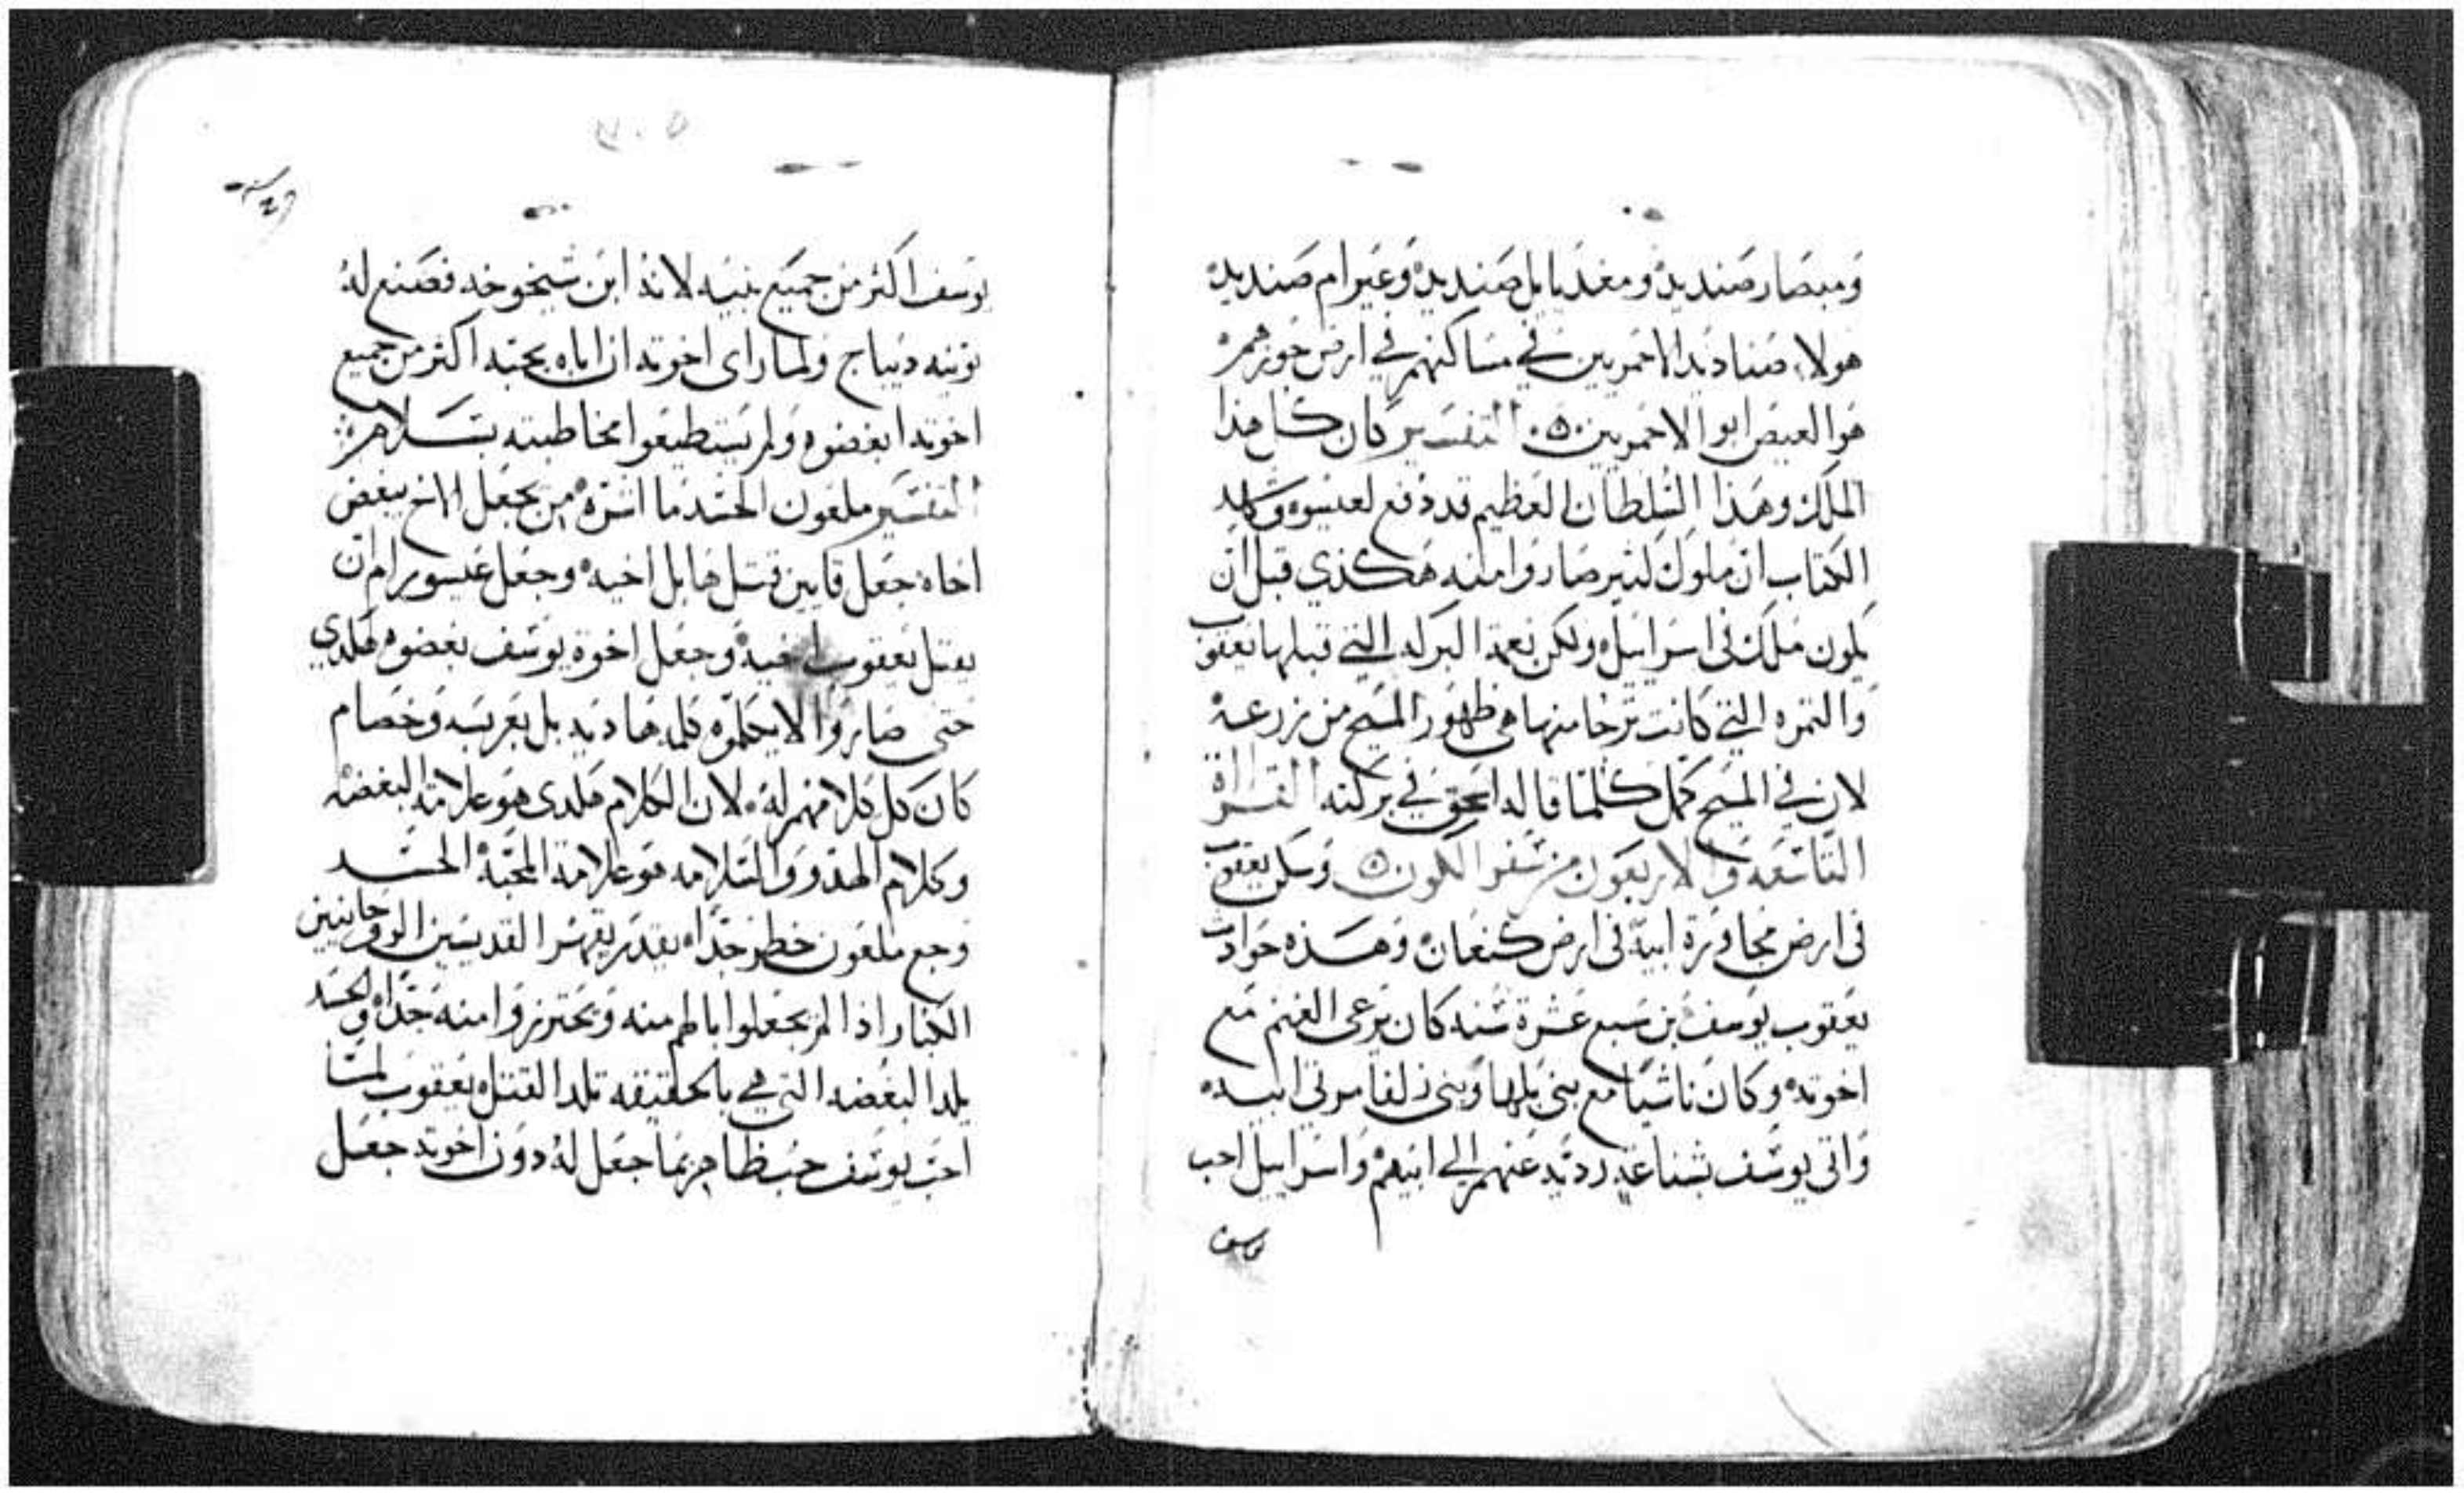 ومبصار صنديد ومغديايل صنديد وعيرام صنديد
هولاء صناديد الاحمريين في مساكنهم في ارض حوزهم
هو العيص ابو الاحمريين التفسير كان كل هذا
الملك وهذا السلطان العظيم قد دفع لعيسوه
الكتاب ان ملوك كثير صاروا منه هكذي قبل ان
يكون ملك في اسراييل ولكن نعمة البركه التي قبلها يعقوب
والثمره التي كانت ترجا منها هي ظهور المسيح من زرعه
لان في المسيح كمل كلما قاله اسحق في بركته القراه
التاسعه والاربعون من سفر الكون وسكن يعقوب
في ارض مجاورة ابيه في ارض كنعان وهذه حوادث
يعقوب يوسف بن سبع عشرة سنه كان يرعي الغنم مع
اخوته وكان ناشيا مع بني بلها وبني زلفا مرتي ابيه
واتي يوسف بشناعه رديه عنهم الي ابيهم واسراييل احب
يوسف
يوسف اكثر من جميع بنيه لانه ابن شيخوخه فصنع له
تونيه ديباج ولما راي اخوته ان اباه يحبه اكثر من جميع
اخوته ابغضوه ولم يستطيعوا مخاطبته بسلامه
التفسير ملعون الحسد ما اشره من يجعل الاخ يبغض
اخاه جعل قايين قتل هابل اخيه وجعل عيسو يرام ان
يقتل يعقوب اخيه وجعل اخوة يوسف بغضوه هكدي
حتي صاروا لا يكلموه كلمه هاديه بل بعربسه وخصام
كان كل كلامهم له لان الكلام هكدي هو علامة البغضه
وكلام الهدوو والسلامه هو علامة المحبة الحسد
وجع ملعون خطر جدا يقدر يقهر القديسين الروحانيين
الكبار اذا لم يجعلوا بالهم منه ويحترزوا منه جدا والحسد
يلد البغضه التي هي بالحقيقه تلد القتل يعقوب لما
احب يوسف حب ظاهر بما جعل له دون اخوته جعل